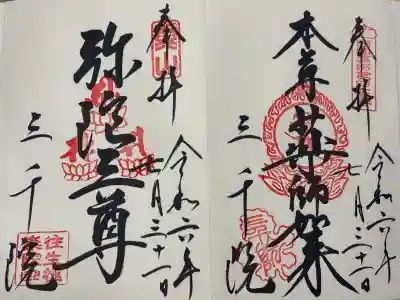 奉拝
令和六年
七月三十一日
本尊薬師如来
三千院
奉拝
令和六年
七月三十一日
弥陀三尊
三千院